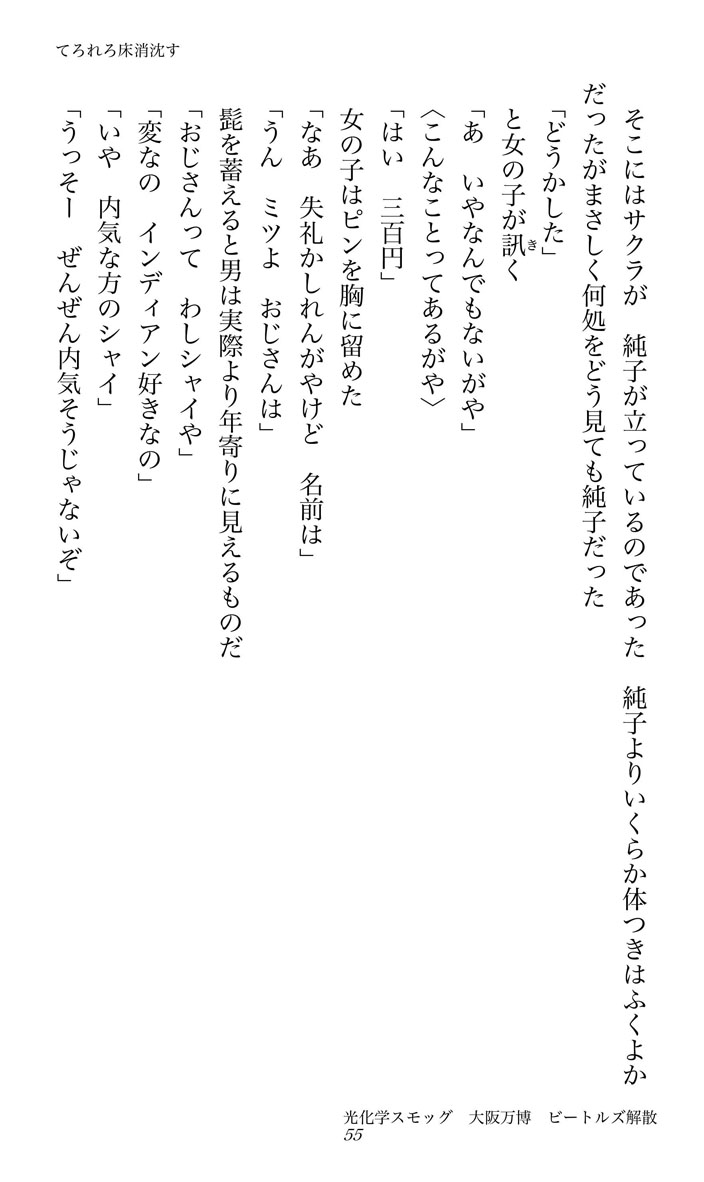 てろれろ床消沈す
そこにはサクラが　純子が立っているのであった　純子よりいくらか体つきはふくよか
だったがまさしく何処をどう見ても純子だった
「どうかした」
と女の子が訊く
き
「あ　いやなんでもないがや」
〈こんなことってあるがや〉
「はい　三百円」
女の子はピンを胸に留めた
「なあ　失礼かしれんがやけど　名前は」
「うん　ミツよ　おじさんは」
髭を蓄えると男は実際より年寄りに見えるものだ
「おじさんって　わしシャイや」
「変なの　インディアン好きなの」
「いや　内気な方のシャイ」
「うっそー　ぜんぜん内気そうじゃないぞ」
光化学スモッグ　大阪万博　ビートルズ解散
55